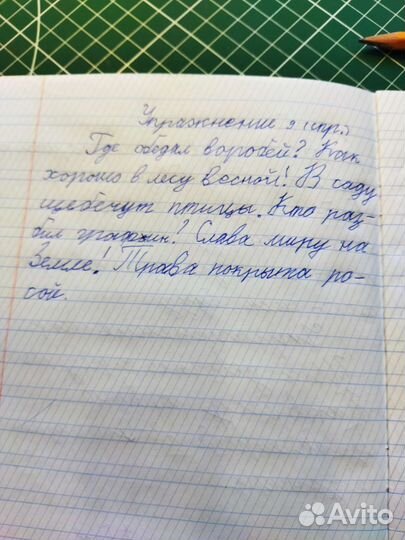 Упражнение 9 (стр.)
Где обедал воробей? Как
хорошо в лесу весной! В саду
щебечут птицы. Кто раз-
бил графин? Слава миру на
Земле! Трава покрыта ро-
сой.
Avito